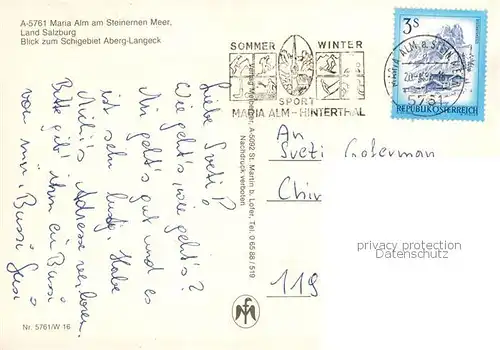 A-5761 Maria Alm am Steinernen Meer,
Land Salzburg
Blick zum Schigebiet Aberg-Langeck
Liebe Sveti!
Wie geht's, wie geht's?
Mir geht's gut und es
ist sehr lustig. Habe
Michi's Adresse verloren.
Bitte gib' ihm ein Bussi
von mir. Bussi Susi
Nr. 5761/W 16
A-5092 St. Martin b. Lofer, Tel. 0 65 88 / 519
Nachdruck verboten
SOMMER WINTER
SPORT
MARIA ALM - HINTERTHAL
3 S
REPUBLIK ÖSTERREICH
MARIA ALM a. STEIN
5761
An
Sveti
Chir
119
privacy protection
Datenschutz